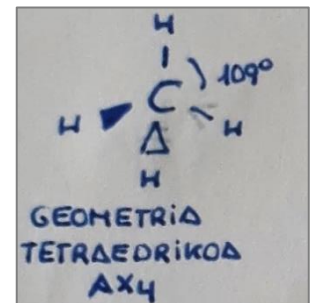 H
109º
C
H H
H
GEOMETRIA
TETRAEDRIKOA
AX4